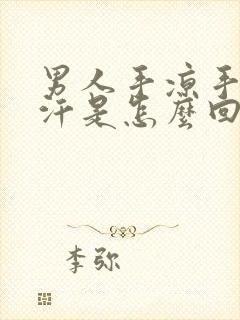 男人手凉手
汗是怎麽回
李弥